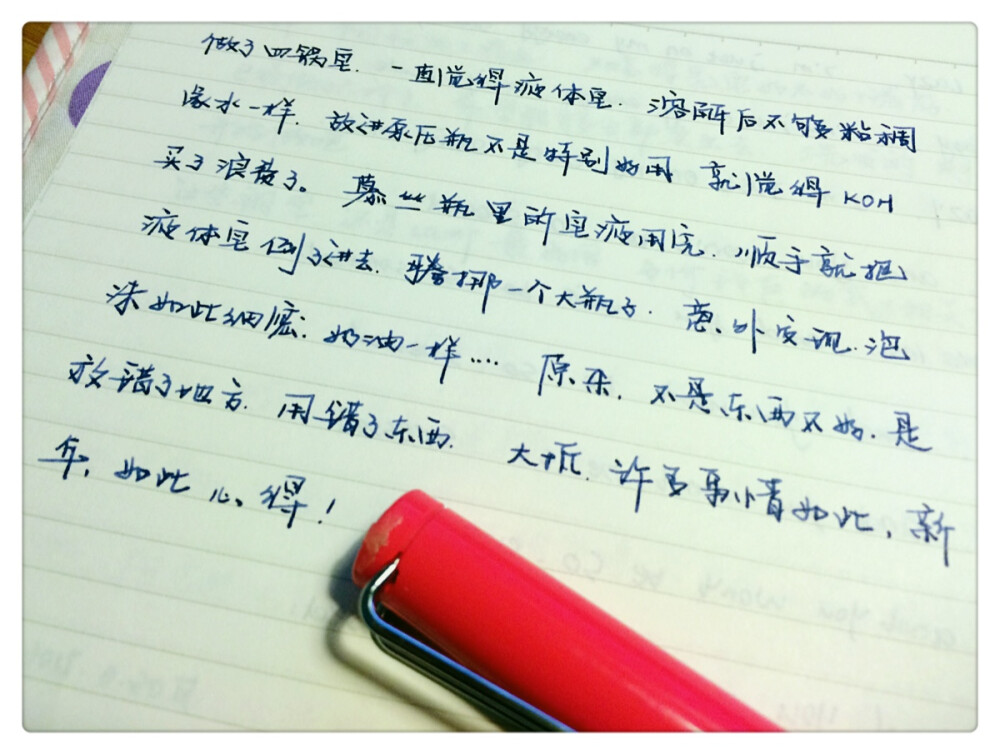 做了四锅皂.一直觉得液体皂.溶解后不够粘稠
像水一样.放进原压瓶不是特别好用 就觉得KOH
买了浪费了。慕丝瓶里的皂液用完.顺手就把
液体皂倒了进去.腾挪一个大瓶子.意外发现.泡
沫如此细腻:奶油一样.... 原来.不是东西不好.是
放错了地方.用错了东西. 大抵.许多事情如此,新
年,如此心得!